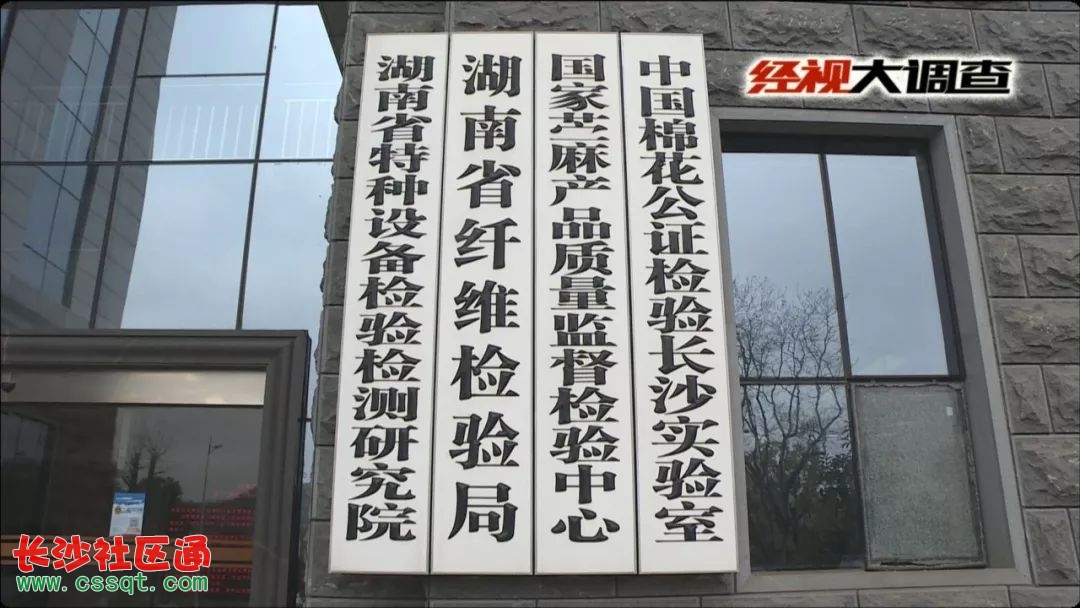 湖南省特种设备检验检测研究院
湖南省纤维检验局
国家苎麻产品质量监督检验中心
中国棉花公证检验长沙实验室
经视大调查
长沙社区通
www.cssqt.com